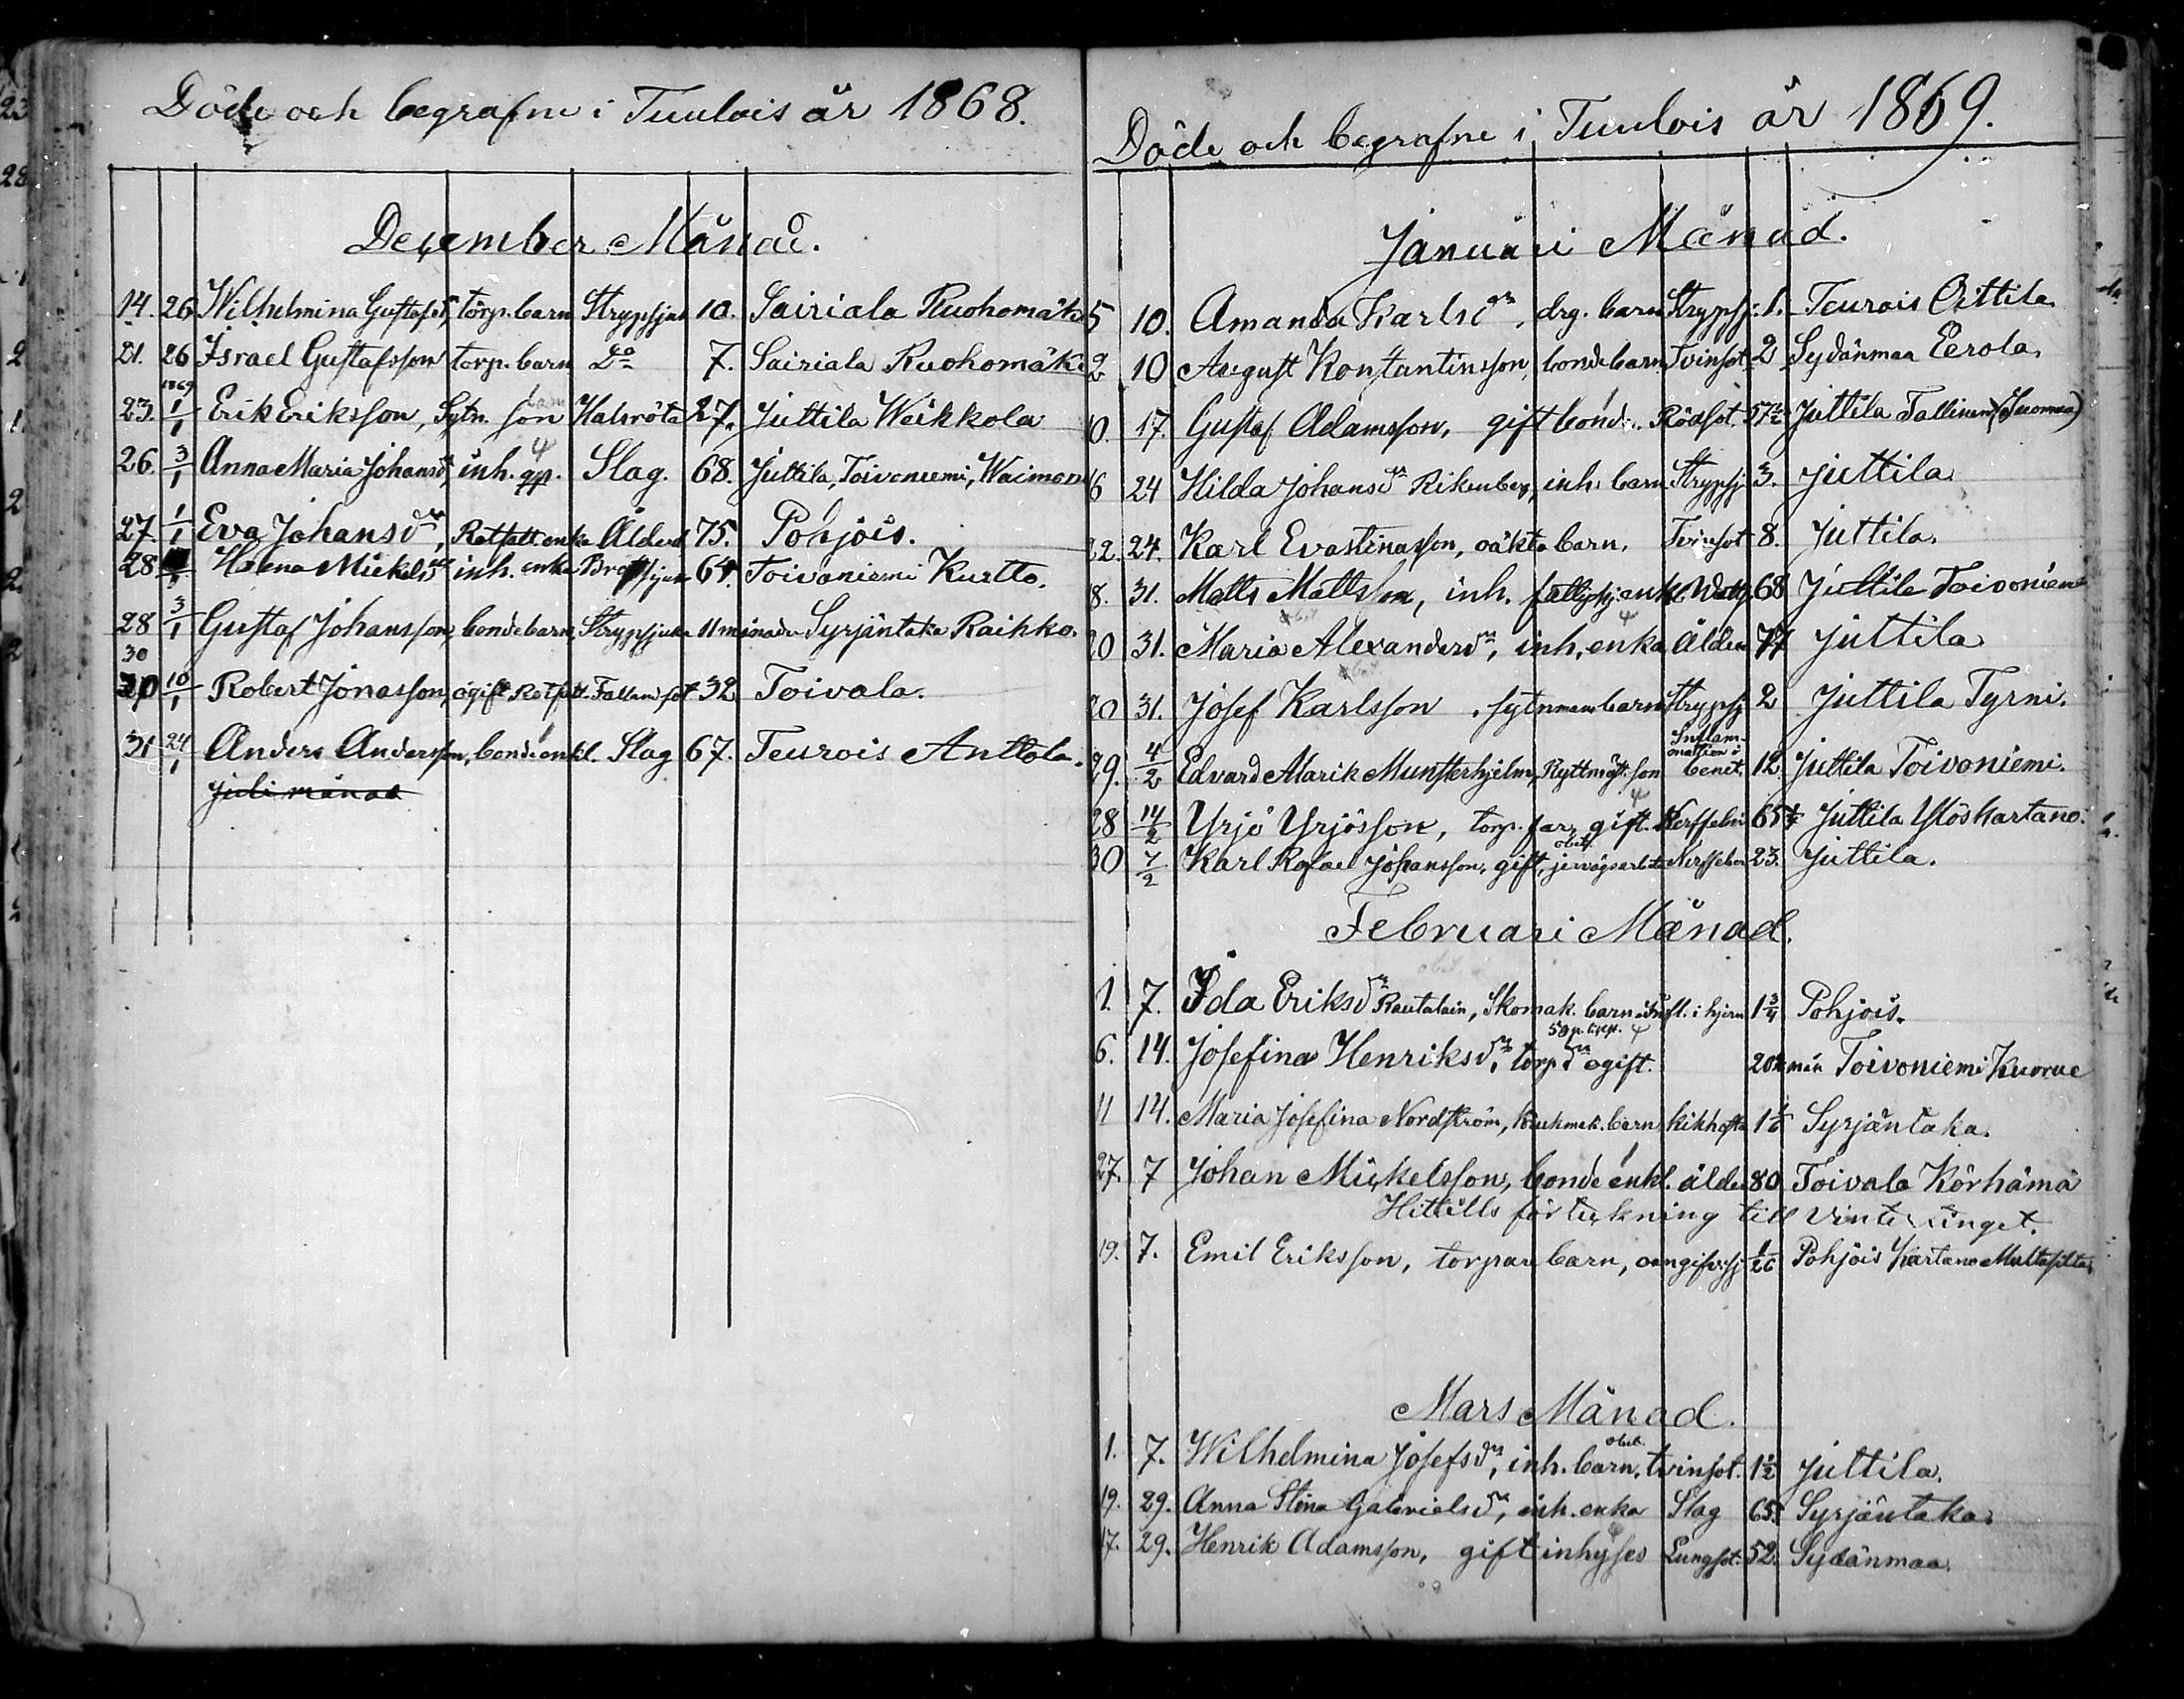 Döde och begrafne i Tuulois år 1868.
December Månad.
14. 26 Wilhelmina Gustafsdr, torp. barn Strypsjuk 10. Sairiala Ruohomäki
21. 26 Israel Gustafsson torp. barn Do 7. Sairiala Ruohomäki
1869
23. 1/1 Erik Eriksson, Sytn. son Halsröta 27. Juttila Weikkola
26. 3/1 Anna Maria Johansdr, inh. Slag. 68. Juttila, Toivoniemi, Waimon
27. 1/1 Eva Johansdr, Rotfatt. enka Ålderd 75. Pohjois.
28 Helena Mickelsdr inh. enka 64. Toivaniemi Kurtto.
28 3/1 Gustaf Johansson, bondebarn, Strypsjuka 11 månader Syrjäntaka Raikko.
30
10/1 Robert Jonasson, ogift Rotfatt. Fallandsot 32 Toivala.
31 24/1 Anders Andersson, bonde enkl. Slag 67. Teurois Anttola.
Juli månad
Döde och begrafne i Tuulois år 1869.
Januari Månad.
5 10. Amanda Karlsdr, drg. barn Strypsj: 1. Teurois Oittila
2 10 August Konstantinsson, bondebarn Tvinsot 2 Sydänmaa Eerola.
10. 17. Gustaf Adamsson, gift bonde Rödsot. 57 1/2 Juttila Tallinen (Suomaa)
16 24 Hilda Johansdr Rikenberg, inh. barn Strypsj 3. Juttila
22. 24. Karl Evastinasson, oäkta barn, Tvinsot 8. Juttila.
18. 31. Matts Mattsson, inh. fattighj. enkl. Watts 68 Juttila Toivoniemi
20 31. Maria Alexandersdr, inh. enka Ålderd 77 Juttila
20 31. Josef Karlsson, sytnmans barn Strypsj 2 Juttila Tyrni.
29. 4/2 Edvard Alarik Munsterhjelm, Ryttmäst. son Inflammation i benet. 12. Juttila Toivoniemi.
28 14/2 Yrjö Yrjösson, torp. far, gift. Nerffeber 65 Juttila Yltöskartano.
30 7/2 Karl Rafael Johansson, gift, jernvägsarbetare Nerffeber 23. Juttila.
Februari Månad.
1. 7. Ida Eriksdr Rautalain, Skomak. barn Infl. i hjern 1 3/4 Pohjois.
6. 14. Josefina Henriksdr, torp. dr ogift. 20 mån Toivoniemi Kuorue
11 14. Maria Josefina Nordström, Krukmak. barn kikhosta 1 Syrjäntaka.
27. 7 Johan Mickelsson, bonde enkl. ålder 80 Toivala Körhämä
Hittills förteckning till Vintertinget.
19. 7. Emil Eriksson, torpare barn, oangifv. sj 1/26 Pohjois Kartano Multasilta
Mars Månad.
1. 7. Wilhelmina Josefsdr, inh. barn, tvinsot. 1 1/2 Juttila.
19. 29. Anna Stina Gabrielsdr, inh. enka Slag 65. Syrjäntaka.
17. 29. Henrik Adamsson, gift inhyses Lungsot. 52. Sydänmaa.